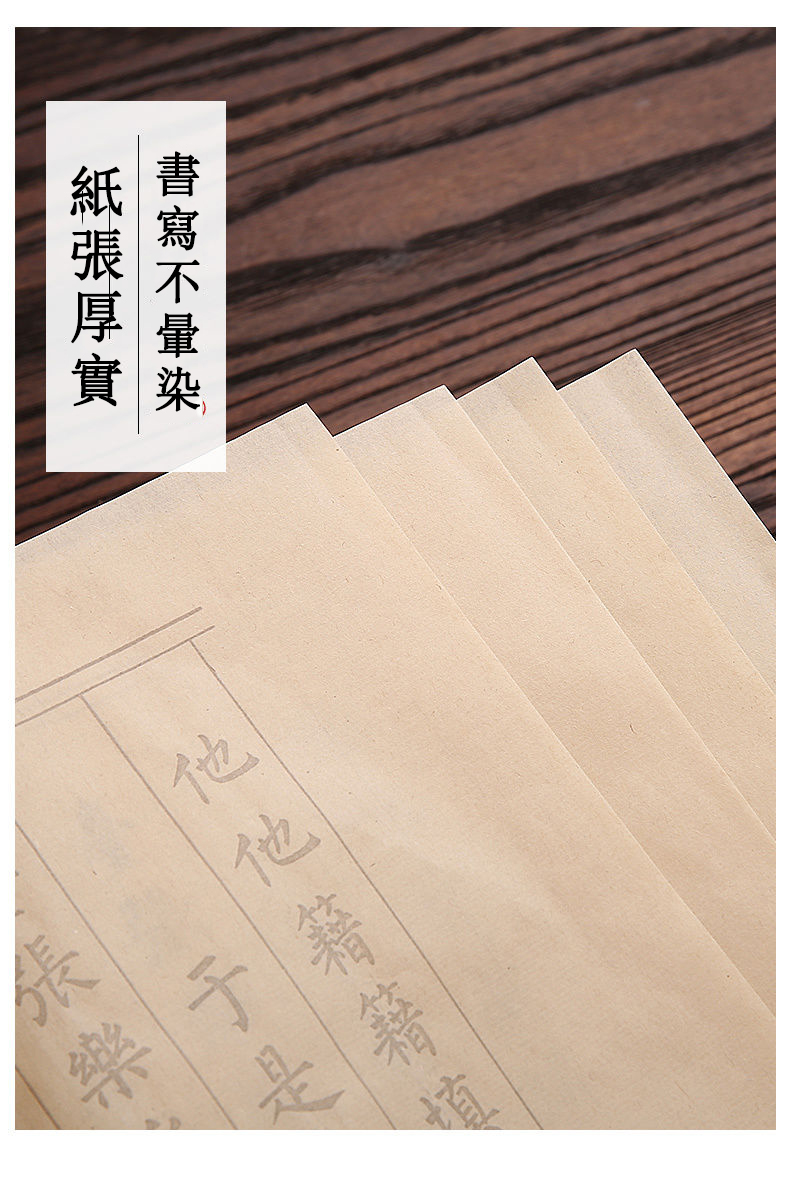 書寫不暈染
紙張厚實
他他籍籍填
于是
張樂